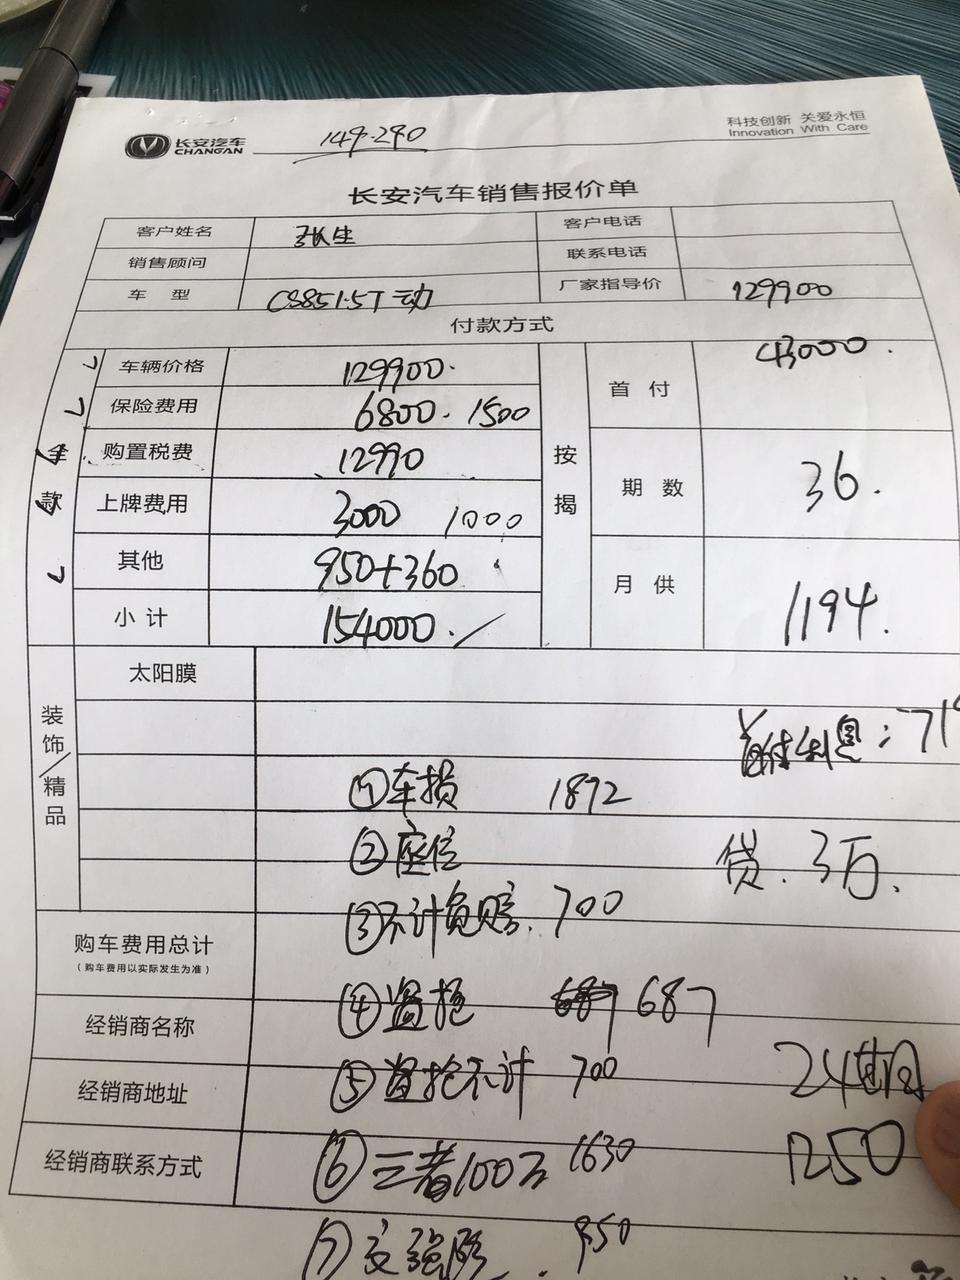 长安汽车
CHANGAN
149.290
科技创新 关爱永恒
Innovation With Care
长安汽车销售报价单
客户姓名 张生 客户电话
销售顾问 联系电话
车 型 CS85 1.5T 动 厂家指导价 129900
付款方式
全款
车辆价格 129900.
保险费用 6800. 1500
购置税费 12990
上牌费用 3000 1000
其他 950+360
小计 154000.
按揭
首 付 43000.
期 数 36.
月 供 1194.
装饰/精品
太阳膜
利息:71
①车损 1872
②座位
贷.3万.
③不计免赔. 700
购车费用总计
(购车费用以实际发生为准)
④盗抢 687
经销商名称
⑤盗抢不计 700
24期
经销商地址
⑥三者100万 1630
1250
经销商联系方式
⑦交强险. 950